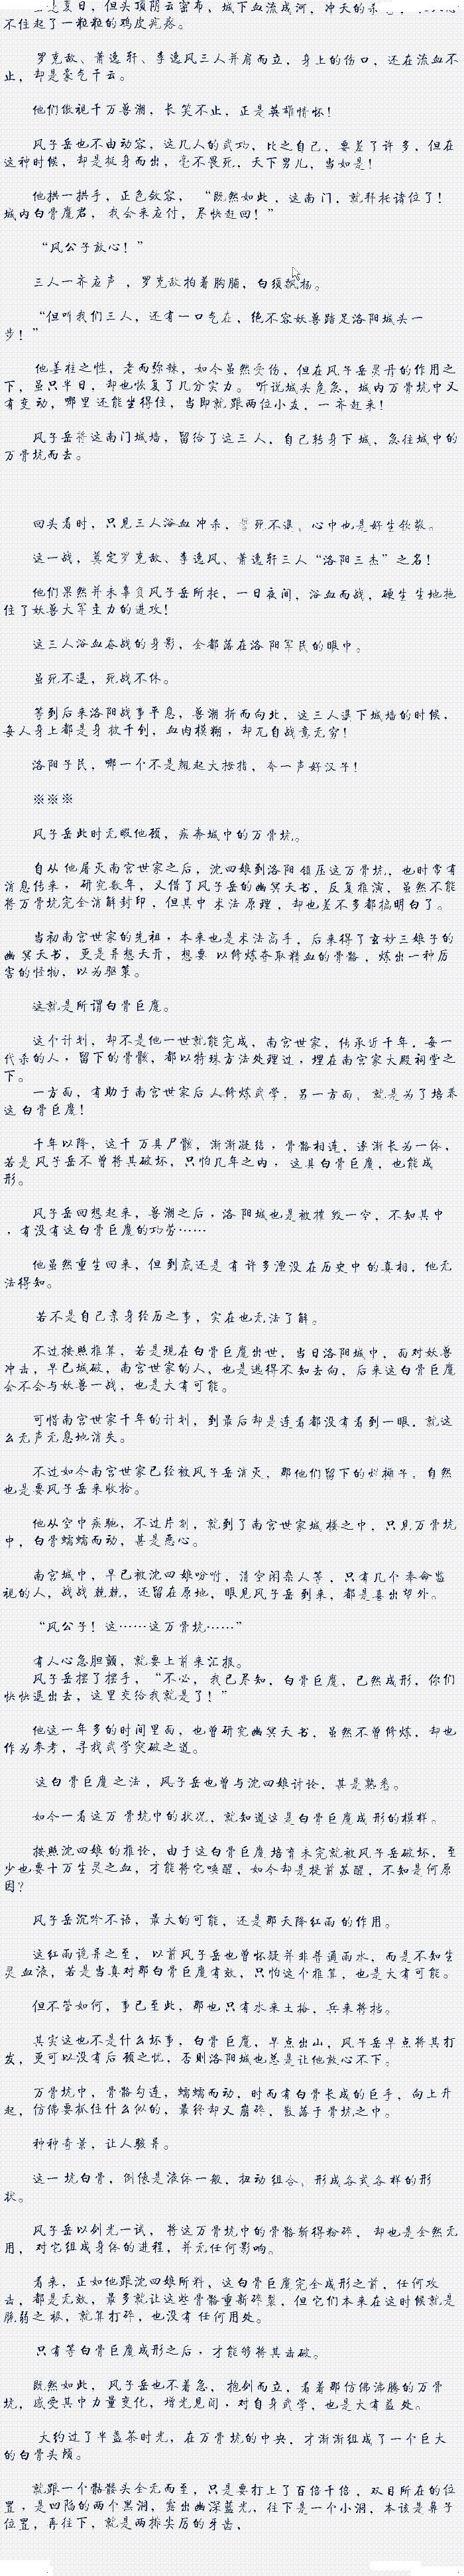 是夏日，但头顶阴云密布、城下血流成河，冲天的
不住起了一粒粒的鸡皮疙瘩。
罗克敌、萧逸轩、李逸风三人并肩而立，身上的伤口，还在流血不
止，却是豪气干云。
他们傲视千万兽潮，长笑不止，正是英雄情怀！
风子岳也不由动容，这几人的武功，比之自己，要差了许多，但在
这种时候，却是挺身而出，毫不畏死，天下男儿，当如是！
他拱一拱手，正色敛容， “既然如此，这南门，就拜托诸位了！
城内白骨魔君，我会来应付，尽快赶回！”
“风公子放心！”
三人一齐应声，罗克敌拍着胸脯，白须飘扬。
“但听我们三人，还有一口气在，绝不容妖兽踏足洛阳城头一
步！”
他姜桂之性，老而弥辣，如今虽然受伤，但在风子岳灵丹的作用之
下，虽只半日，却也恢复了几分实力。 听说城头危急，城内万骨坑中又
有变动，哪里还能坐得住，当即就跟两位小友，一齐赶来！
风子岳将这南门城墙，留给了这三人，自己转身下城，急往城中的
万骨坑而去。
回头看时，只见三人浴血冲杀，誓死不退、心中也是好生钦敬。
这一战，奠定罗克敌、李逸风、萧逸轩三人“洛阳三杰”之名！
他们果然并未辜负风子岳所托，一日夜间，浴血而战，硬生生地拖
住了妖兽大军主力的进攻！
这三人浴血奋战的身影，全都落在洛阳军民的眼中。
虽死不退，死战不休。
等到后来洛阳战事平息，兽潮折而向北，这三人退下城墙的时候，
每人身上都是身被千创，血肉模糊，却兀自战意无穷！
洛阳子民，哪一个不是翘起大拇指，夸一声好汉子！
※※※
风子岳此时无暇他顾，疾奔城中的万骨坑。
自从他屠灭南宫世家之后，沈四娘到洛阳镇压这万骨坑，也时常有
消息传来，研究数年，又借了风子岳的幽冥天书，反复推演，虽然不能
将万骨坑完全消解封印，但其中术法原理，却也差不多都搞明白了。
当初南宫世家的先祖，本来也是术法高手，后来得了玄妙三娘子的
幽冥天书，更是异想天开，想要以修炼夺取精血的骨骼，炼出一种厉
害的怪物，以为驱策。
这就是所谓白骨巨魔。
这个计划，却不是他一世就能完成，南宫世家，传承近千年，每一
代杀的人，留下的骨骸，都以特殊方法处理过，埋在南宫家大殿祠堂之
下。
一方面，有助于南宫世家后人修炼武学，另一方面，就是为了培养
这白骨巨魔！
千年以降，这千万具尸骸，渐渐凝结，骨骼相连，逐渐长为一体，
若是风子岳不曾将其破坏，只怕几年之内，这具白骨巨魔，也能成
形。
风子岳回想起来，兽潮之后，洛阳城也是被摧毁一空，不知其中
，有没有这白骨巨魔的功劳……
他虽然重生回来，但到底还是有许多湮没在历史中的真相，他无
法得知。
若不是自己亲身经历之事，实在也无法了解。
不过按照推算，若是现在白骨巨魔出世，当日洛阳城中，面对妖兽
冲击，早已城破，南宫世家的人，也是逃得不知去向，后来这白骨巨魔
会不会与妖兽一战，也是大有可能。
可惜南宫世家千年的计划，到最后却是连看都没有看到一眼，就这
么无声无息地消失。
不过如今南宫世家已经被风子岳消灭，那他们留下的烂摊子，自然
也是要风子岳来收拾。
他从空中疾驰，不过片刻，就到了南宫世家城楼之中，只见万骨坑
中，白骨蠕蠕而动，甚是恶心。
南宫城中，早已被沈四娘吩咐，清空闲杂人等，只有几个奉命监
视的人，战战兢兢，还留在原地，眼见风子岳到来，都是喜出望外。
“风公子！这……这万骨坑……”
有人心急胆颤，就要上前来汇报。
风子岳摆了摆手，“不必，我已尽知，白骨巨魔，已然成形，你们
快快退出去，这里交给我就是了！”
他这一年多的时间里面，也曾研究幽冥天书，虽然不曾修炼，却也
作为参考，寻找武学突破之道。
这白骨巨魔之法，风子岳也曾与沈四娘讨论，甚是熟悉。
如今一看这万骨坑中的状况，就知道这是白骨巨魔成形的模样。
按照沈四娘的推论，由于这白骨巨魔培育未完就被风子岳破坏，至
少也要十万生灵之血，才能将它唤醒，如今却是提前苏醒，不知是何原
因？
风子岳沉吟不语，最大的可能，还是那天降红雨的作用。
这红雨诡异之至，以前风子岳也曾怀疑并非普通雨水，而是不知生
灵血液，若是当真对那白骨巨魔有效，只怕这个推算，也是大有可能。
但不管如何，事已至此，那也只有水来土掩，兵来将挡。
其实这也不是什么坏事，白骨巨魔，早点出山，风子岳早点将其打
发，更可以没有后顾之忧，否则洛阳城也总是让他放心不下。
万骨坑中，骨骼勾连，蠕蠕而动，时而有白骨长成的巨手，向上升
起，仿佛要抓住什么似的，最终却又崩碎，散落于骨坑之中。
种种奇景，让人骇异。
这一坑白骨，倒像是液体一般，扭动组合，形成各式各样的形
状。
风子岳以剑光一试，将这万骨坑中的骨骼斩得粉碎，却也是全然无
用，对它组成身体的进程，并无任何影响。
看来，正如他跟沈四娘所料，这白骨巨魔完全成形之前，任何攻
击，都是无效，最多就让这些骨骼重新碎裂，但它们本来在这时候就是
脆弱之极，就算打碎，也没有任何用处。
只有等白骨巨魔成形之后，才能够将其击破。
既然如此，风子岳也不着急，抱剑而立，看着那仿佛沸腾的万骨
坑，感受其中力量变化，增光见闻，对自身武学，也是大有益处。
大约过了半盏茶时光，在万骨坑的中央，才渐渐组成了一个巨大
的白骨头颅。
就跟一个骷髅头全无两至，只是要打上了百倍千倍，双目所在的位
置，是凹陷的两个黑洞，露出幽深蓝光，往下是一个小洞，本该是鼻子
位置，再往下，就是两排尖厉的牙齿，